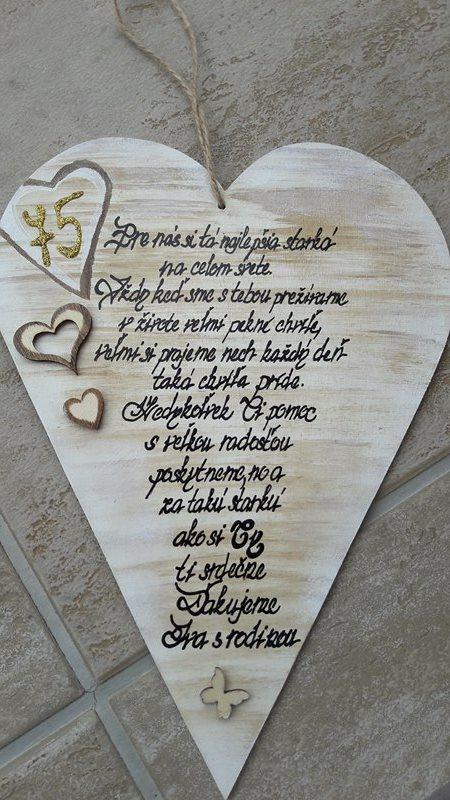 75
Pre nás si tá najlepšia starká
na celom svete.
Vždy keď sme s tebou prežívame
v živote veľmi pekné chvíle,
veľmi si prajeme nech každý deň
taká chvíľa príde.
Kedykoľvek Ti pomoc
s veľkou radosťou
poskytneme, no a
za takú starkú
ako si Ty
ti srdečne
Ďakujeme
Iva s rodinou